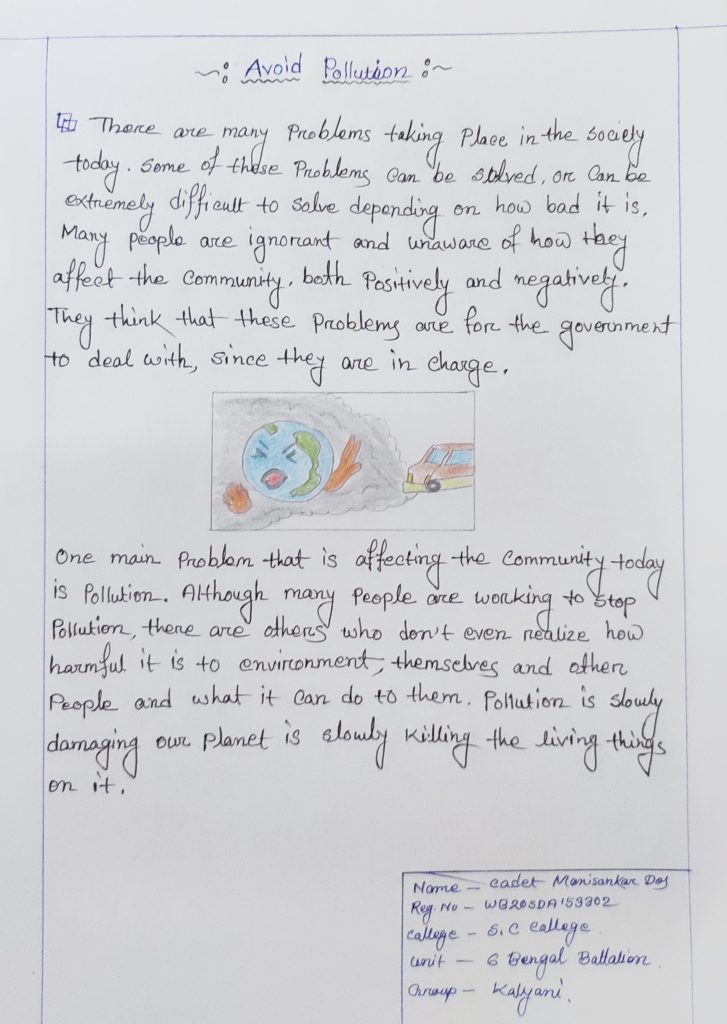 ~: Avoid Pollution :~
There are many Problems taking Place in the society
today. Some of these Problems can be stolved, or can be
extremely difficult to solve depending on how bad it is.
Many people are ignorant and unaware of how they
affect the community. both Positively and negatively.
They think that these problems are for the government
to deal with, since they are in charge.
One main Problem that is affecting the community today
is Pollution. Although many People are working to stop
Pollution, there are others who don't even realize how
harmful it is to environment, themselves and other
People and what it can do to them. Pollution is slowly
damaging our Planet is slowly killing the living things
on it.
Name - Cadet Manisankar Das
Reg. No - WB20SDA153302
College - S.C College.
Unit - 6 Bengal Battalion.
Group - Kalyani.